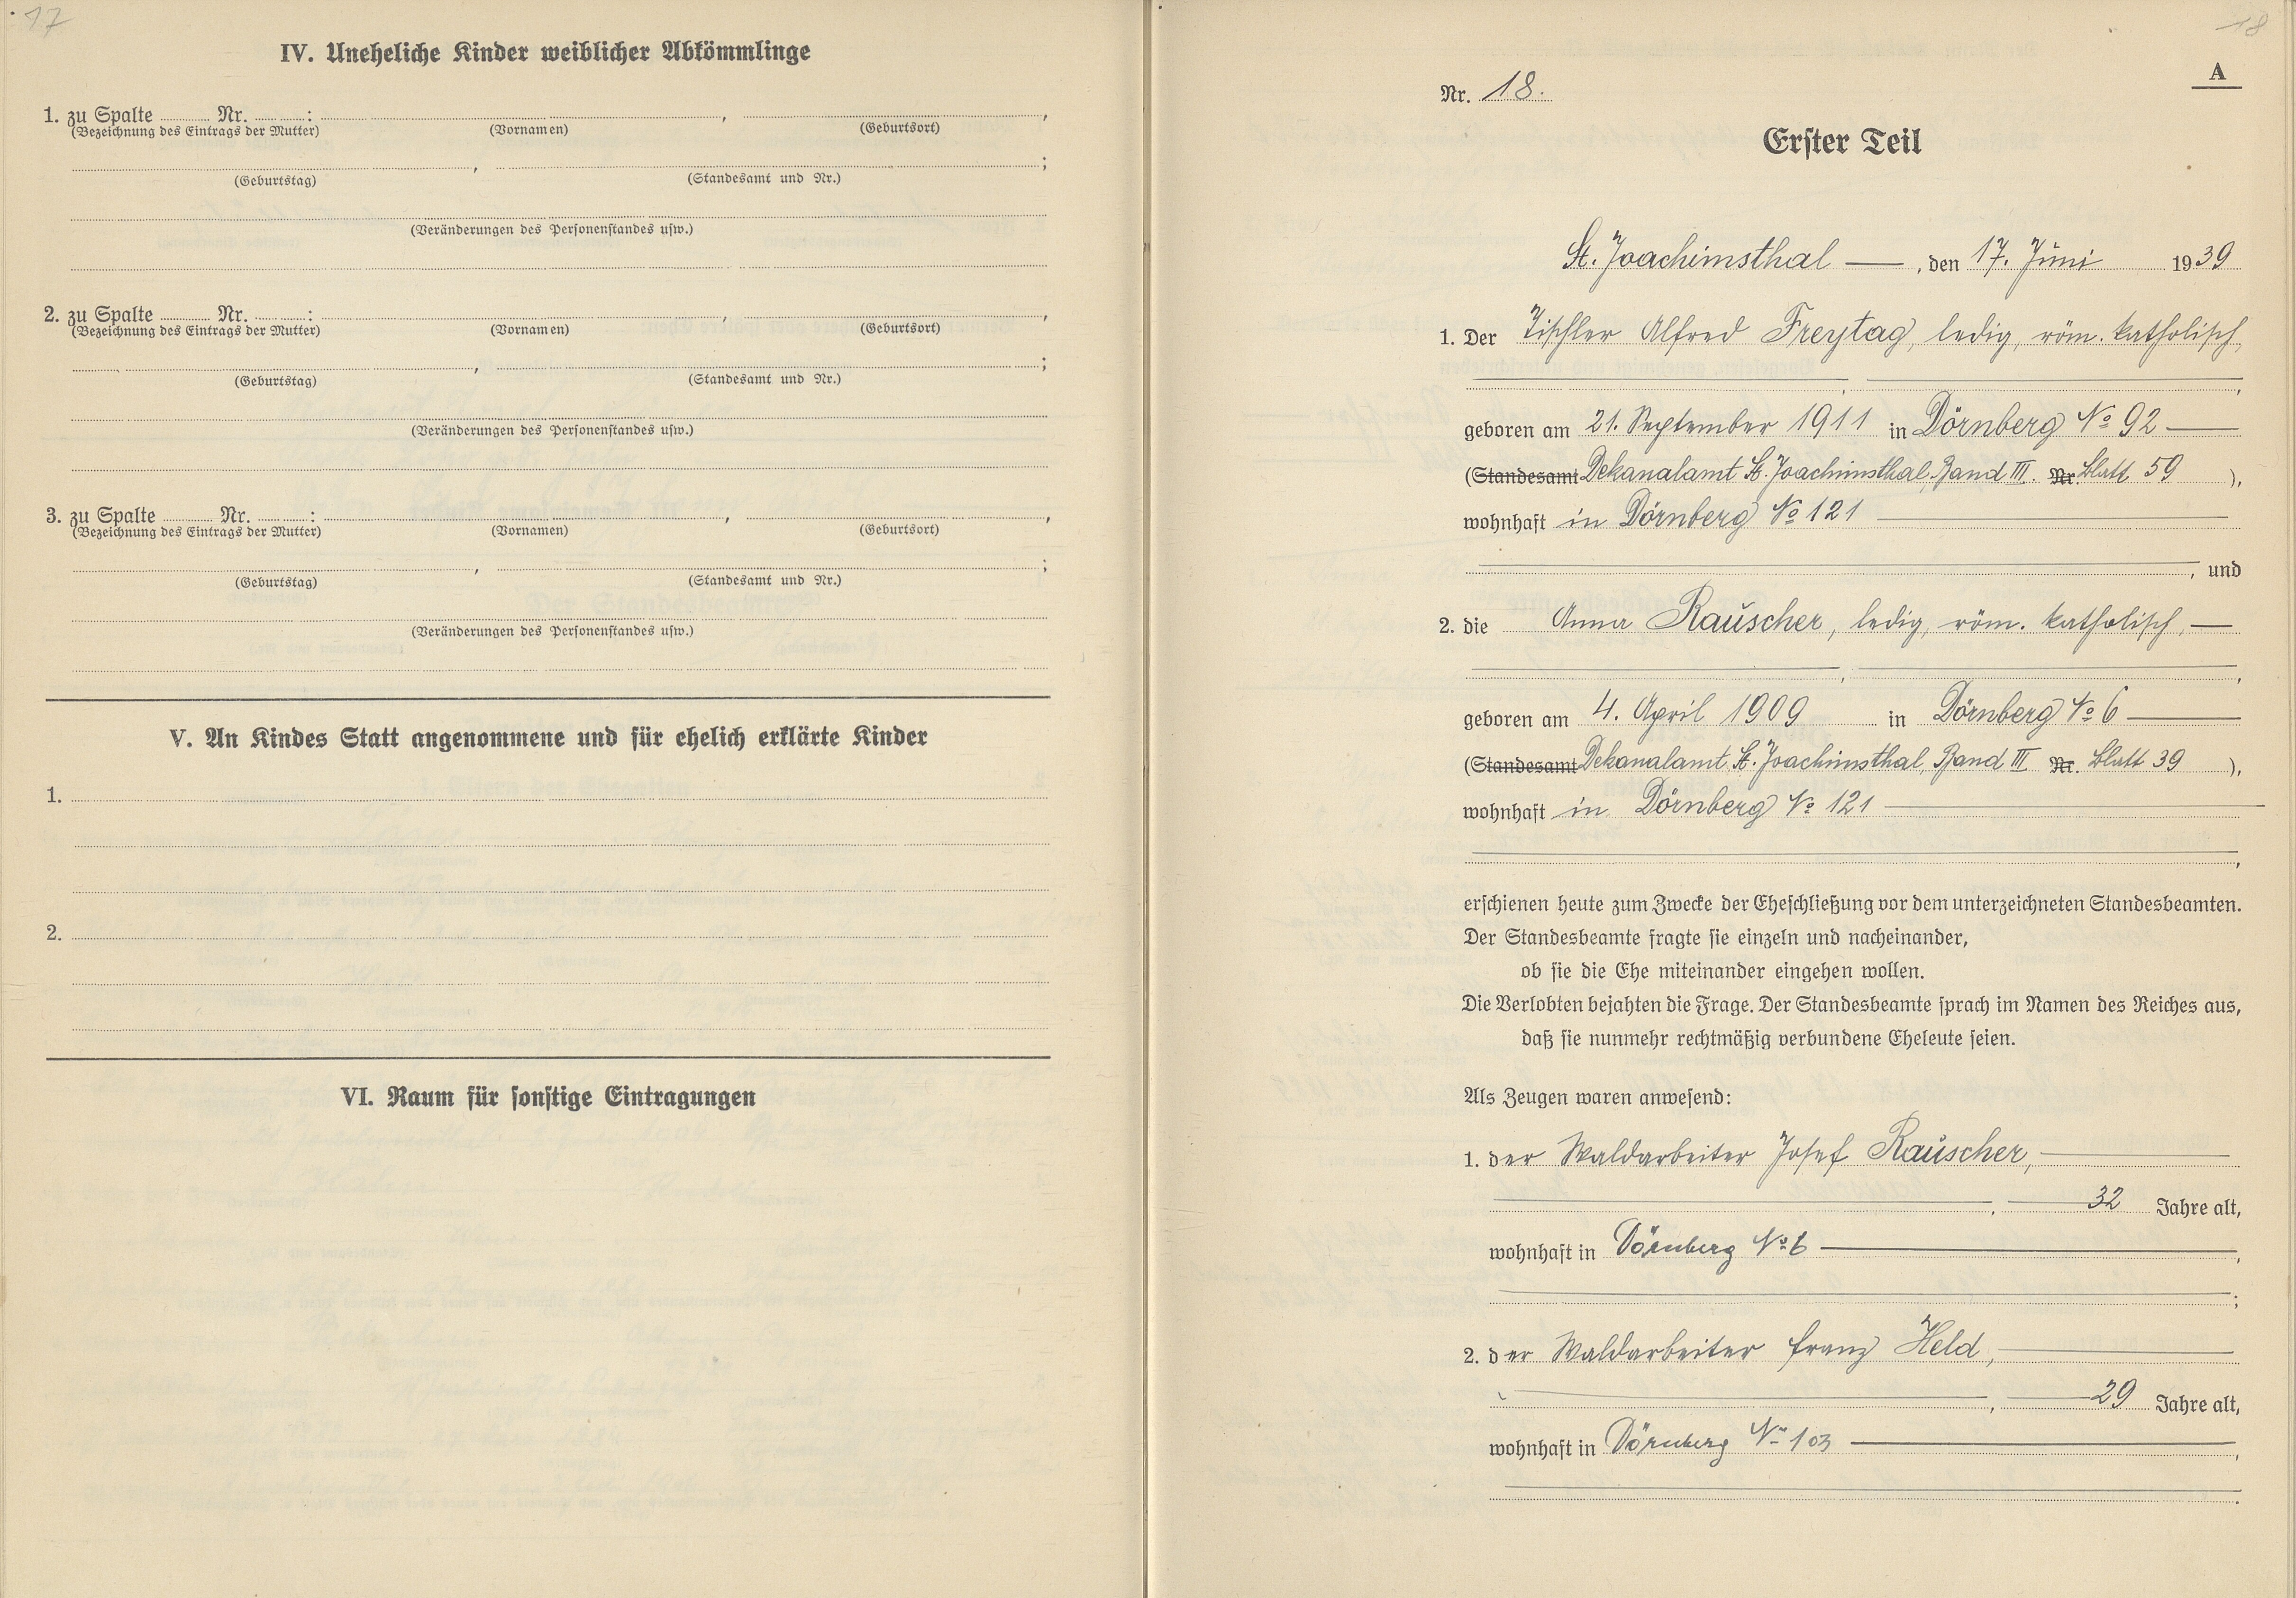 17
IV. Uneheliche Kinder weiblicher Abkömmlinge
1. zu Spalte ........ Nr. ........ : ........ , ........ ,
(Bezeichnung des Eintrags der Mutter) (Vornamen) (Geburtsort)
........ , ........ ;
(Geburtstag) (Standesamt und Nr.)
(Veränderungen des Personenstandes usw.)
2. zu Spalte ........ Nr. ........ : ........ , ........ ,
(Bezeichnung des Eintrags der Mutter) (Vornamen) (Geburtsort)
........ , ........ ;
(Geburtstag) (Standesamt und Nr.)
(Veränderungen des Personenstandes usw.)
3. zu Spalte ........ Nr. ........ : ........ , ........ ,
(Bezeichnung des Eintrags der Mutter) (Vornamen) (Geburtsort)
........ , ........ ;
(Geburtstag) (Standesamt und Nr.)
(Veränderungen des Personenstandes usw.)
V. An Kindes Statt angenommene und für ehelich erklärte Kinder
1.
2.
VI. Raum für sonstige Eintragungen
18
A
Nr. 18.
Erster Teil
St. Joachimsthal —, den 17. Juni 1939
1. Der Tischler Alfred Freytag, ledig, röm. katholisch,
geboren am 21. September 1911 in Dörnberg No 92 —
(Standesamt Dekanalamt St. Joachimsthal, Band III. Nr. Blatt 59 ),
wohnhaft in Dörnberg No 121 —
, und
2. die Anna Rauscher, ledig, röm. katholisch, —
geboren am 4. April 1909 in Dörnberg No 6 —
(Standesamt Dekanalamt St. Joachimsthal, Band III Nr. Blatt 39 ),
wohnhaft in Dörnberg No 121 —
erschienen heute zum Zwecke der Eheschließung vor dem unterzeichneten Standesbeamten.
Der Standesbeamte fragte sie einzeln und nacheinander,
ob sie die Ehe miteinander eingehen wollen.
Die Verlobten bejahten die Frage. Der Standesbeamte sprach im Namen des Reiches aus,
daß sie nunmehr rechtmäßig verbundene Eheleute seien.
Als Zeugen waren anwesend:
1. der Waldarbeiter Josef Rauscher, —
, — 32 Jahre alt,
wohnhaft in Dörnberg No 6 — ,
;
2. der Waldarbeiter Franz Held, —
, — 29 Jahre alt,
wohnhaft in Dörnberg No 103 — ,
.